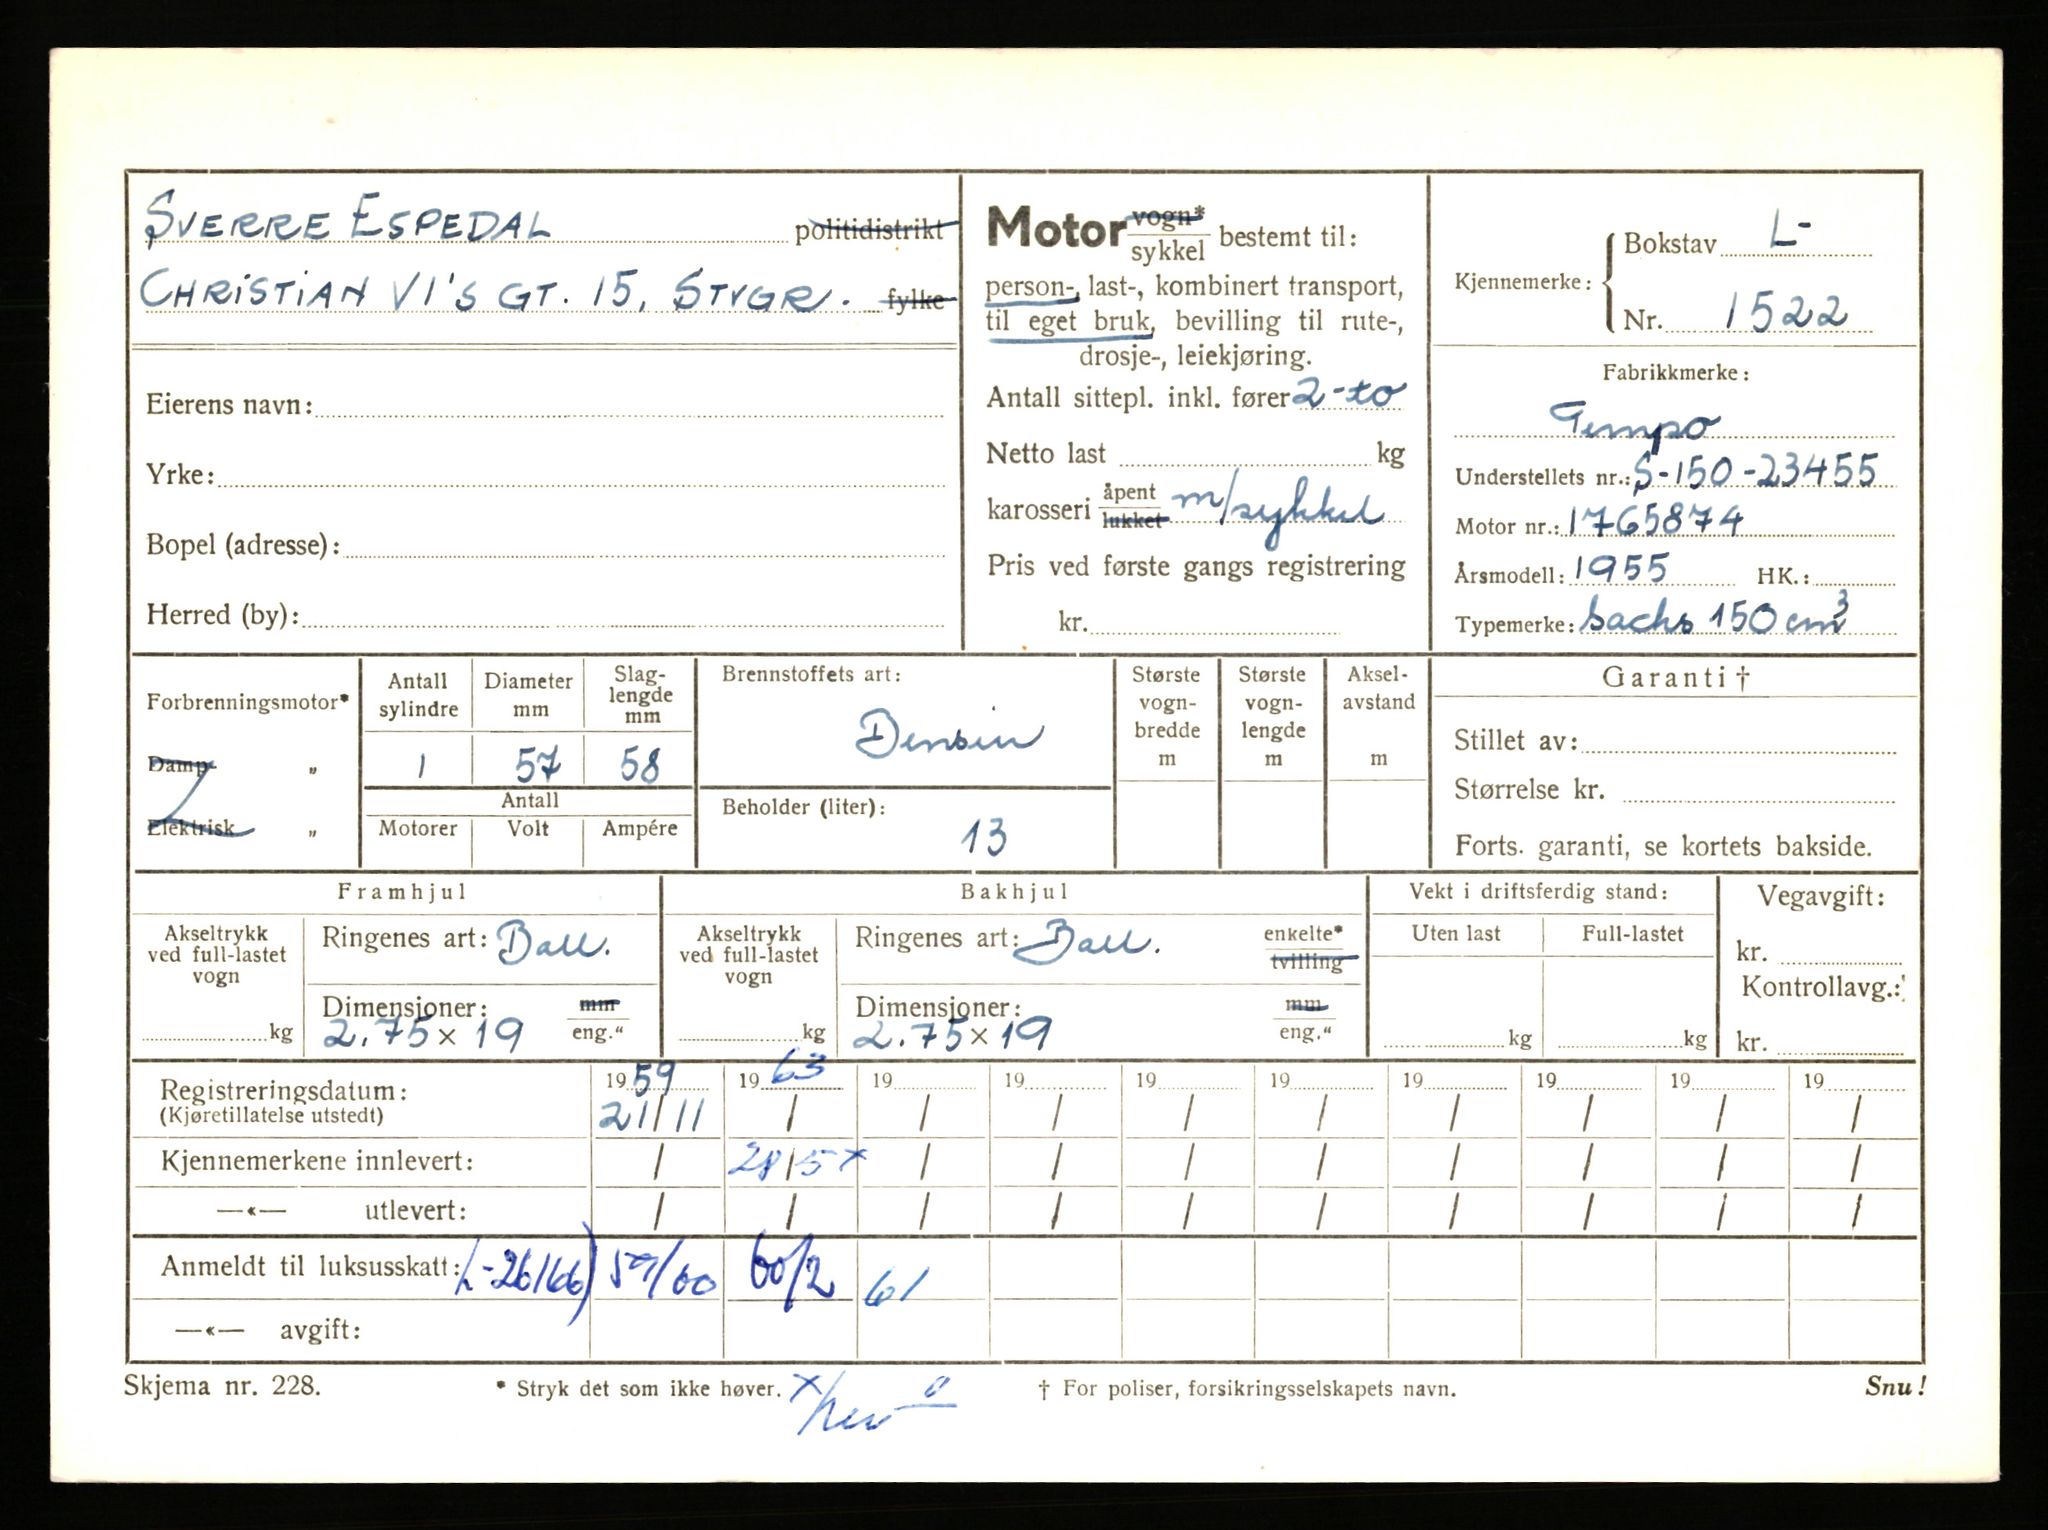 SVERRE ESPEDAL politidistrikt
CHRISTIAN VI'S GT. 15, STVGR. fylke
Eierens navn:
Yrke:
Bopel (adresse):
Herred (by):
Motor vogn* sykkel bestemt til:
person-, last-, kombinert transport,
til eget bruk, bevilling til rute-,
drosje-, leiekjøring.
Antall sittepl. inkl. fører 2-to
Netto last kg
karosseri åpent lukket m/sykkel
Pris ved første gangs registrering
kr.
Kjennemerke: Bokstav L-
Nr. 1522
Fabrikkmerke:
Tempo
Understellets nr.: S-150-23455
Motor nr.: 1765874
Årsmodell: 1955 HK.:
Typemerke: Sachs 150 cm3
Forbrenningsmotor*
Damp „
Elektrisk „
Antall sylindre Diameter mm Slag-lengde mm
1 57 58
Antall
Motorer Volt Ampére
Brennstoffets art:
Bensin
Beholder (liter):
13
Største vogn-bredde m
Største vogn-lengde m
Aksel-avstand m
Garanti †
Stillet av:
Størrelse kr.
Forts. garanti, se kortets bakside.
Framhjul
Akseltrykk ved full-lastet vogn
kg
Ringenes art: Ball.
Dimensjoner: mm
2.75 x 19 eng.“
Bakhjul
Akseltrykk ved full-lastet vogn
kg
Ringenes art: Ball. enkelte* tvilling
Dimensjoner: mm
2.75 x 19 eng.“
Vekt i driftsferdig stand:
Uten last Full-lastet
kg kg
Vegavgift:
kr.
Kontrollavg.:
kr.
Registreringsdatum: 1959 1963 19 19 19 19 19 19 19 19
(Kjøretillatelse utstedt) 21/11 / / / / / / / / /
Kjennemerkene innlevert: / 28/5 x / / / / / / / /
—«— utlevert: / / / / / / / / / /
Anmeldt til luksusskatt: L-26166) 59/60 60/2 61
—«— avgift:
Skjema nr. 228. * Stryk det som ikke høver. x/ † For poliser, forsikringsselskapets navn. Snu!